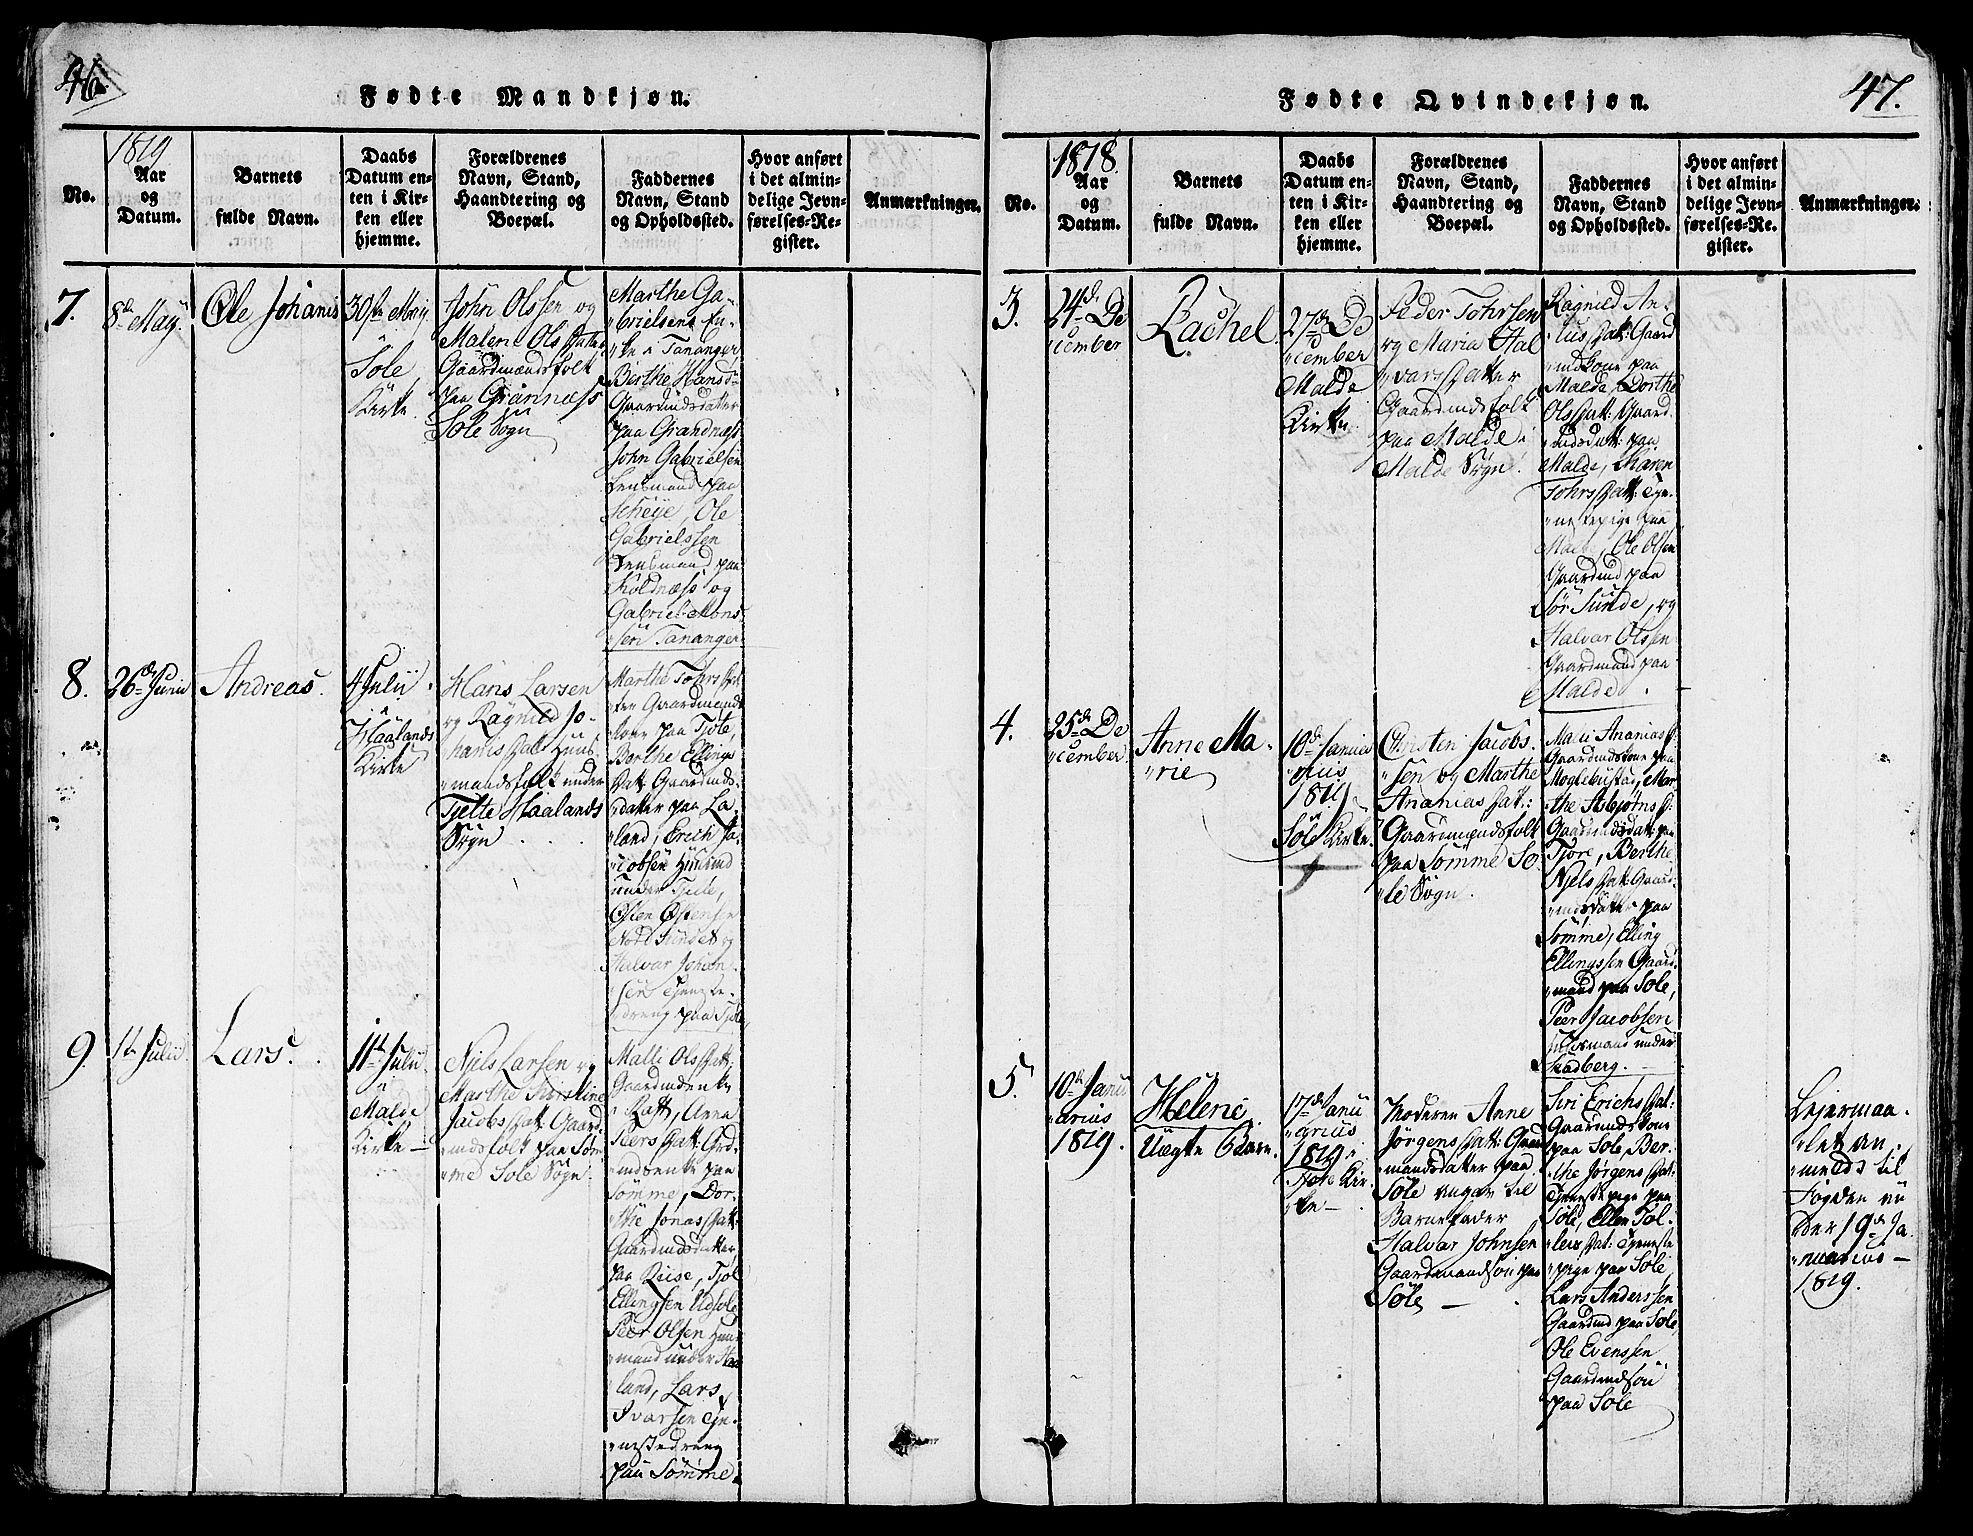 46.
Fødte Mandkjøn.
No.
1819.
Aar
og
Datum.
Barnets
fulde Navn.
Daabs
Datum en-
ten i Kir-
ken eller
hjemme.
Forældrenes
Navn, Stand,
Haandtering og
Boepæl.
Faddernes
Navn, Stand
og Opholdssted.
Hvor anført
i det almin-
delige Jevn-
førelses-Re-
gister.
Anmærkninger.
7.
8de Maÿ.
Ole Johanis
30ste Maij
i
Sole
Kirke.
John Olssen og
Malene Olsdatter
Gaardmandsfolk
paa Grannæss
Sole Sogn
Marthe Ga-
brielsens En-
ke i Tananger,
Berthe Hansd:
Gaardmdsdatter
paa Grandnæss
John Gabrielsen
Lensmand paa
Scheije, Ole
Gabrielssen
Lensmand paa
Koldnæss og
Gabriel Mons-
sen Tananger
8.
26de Junii
Andreas.
4 Julii
i
Haalands
Kirke
Hans Larsen
og Ragnild Jo-
hanisdatt: Huus-
mandsfolk under
Tjelte Haalands
Sogn
Marthe Tohrsdat-
ter Gaardmands
kone paa Tjote,
Berthe Ellings
datt: Gaardmds-
datter paa La-
land, Erich Ja-
cobsen Huusmd
under Tjele,
Østen Østensen
Nord Sunde og
Halvar Johan-
sen Tjeneste-
dreng paa Tjole,
9.
1te Julii.
Lars.
11te Julii
i
Malde
Kirke
Njels Larsen og
Marthe Kirstine
Jacobsdatt: Gaard-
mdsfolk paa Søm-
me Sole Sogn.
Malli Olsdatt:
Gaardmdenke
i Ratt, Anna
Peersdatt: Grd-
mdsenke paa
Sømme, Dor-
the Jonasdatt:
Gaardmdsdatter
paa Riise, Tjøl
Ellingsen Udsole
Peer Olsen Huus-
mand under Haa-
land, Lars
Ivarsen Tje-
nestedreng
paa Sømme.
47.
Fødte Qvindekjøn.
No.
1818.
Aar
og
Datum.
Barnets
fulde Navn.
Daabs
Datum en-
ten i Kir-
ken eller
hjemme.
Forældrenes
Navn, Stand,
Haandtering og
Boepæl.
Faddernes
Navn, Stand
og Opholdssted.
Hvor anført
i det almin-
delige Jevn-
førelses-Re-
gister.
Anmærkninger.
3.
24de De
cember
Rachel
27de De
cember
Malde
Kirke
Peder Tohrsen
og Maria Hal
varsdatter
Gaardmdsfolk
paa Malde i
Malde Sogn.
Ragnild An-
dat: Gaard
mdkone paa
Malde, Dorthe
Olsdatt: Gaard-
mdsdatt: paa
Malde, Karen
Tohrsdatt: Tje-
nestepige paa
Malde, Ole Olsen
Gaardmd paa
Sør Sunde, og
Halvar Olsen
Gaardmand paa
Malde.
4.
25de De
cember
Anne Ma-
rie
10de Janu
arius
1819
Sole Kirke.
Christen Jacobs-
sen og Marthe
Ananiasdat:
Gaardmandsfolk
paa Sømme So-
le Sogn.
Mari Ananiasd:
Gaardmdskone paa
Moglebustad, Mar-
the Asbjørnsd:
Gaardmdsdatt: paa
Tjore, Berthe
Njelsdatt: Gaard-
mdsdatter paa
Sømme, Elling
Ellingssen Gaard-
mand paa Sole,
Peer Jacobsen
Huusmand under
Skadberg.
5.
10de Janu
arius
1819.
Helene.
Uægte Barn.
17de Janu
arius
1819 i
Sole Kir-
ke
Moderen Anne
Jørgensdatt: Gaard
mandsdatter paa
Sole angav til
Barnefader
Halvar Johnsen
Gaardmandsøn paa
Sole
Siri Erichsdat:
Gaardmdskone
paa Sole, Ber-
the Jørgensdat:
Tjenestepige paa
Sole, Ellen Tol-
leivsdat: Tjeneste
pige paa Sole,
Lars Anderssen
Gaardmd paa Sole,
Ole Evenssen
Gaardmdsøn
paa Sole
Lejermaa-
let an-
meldt til
Fogden un-
der 19de Ja-
nuarius
1819.